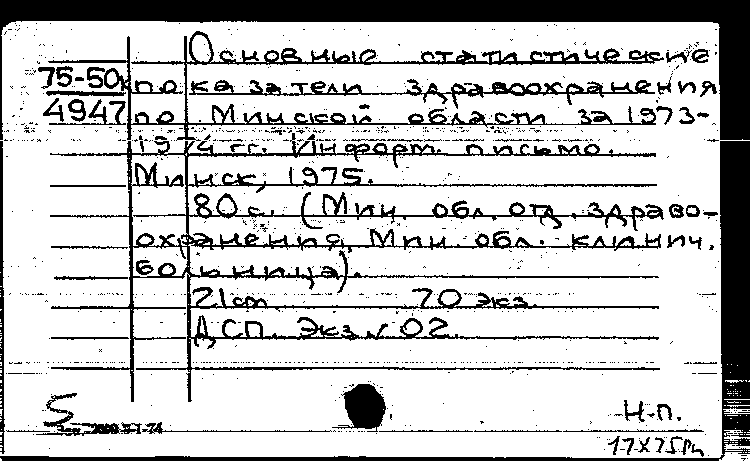 Основные статистические
75-50к показатели здравоохранения
4947 по Минской области за 1973-
1974 гг. Информ. письмо.
Минск, 1975.
80 с. (Мин. обл. отд. здраво-
охранения, Мин. обл. клинич.
больница).
21 cm 70 экз.
ДСП. Экз. № 02.
S Н-п.
17 X 75